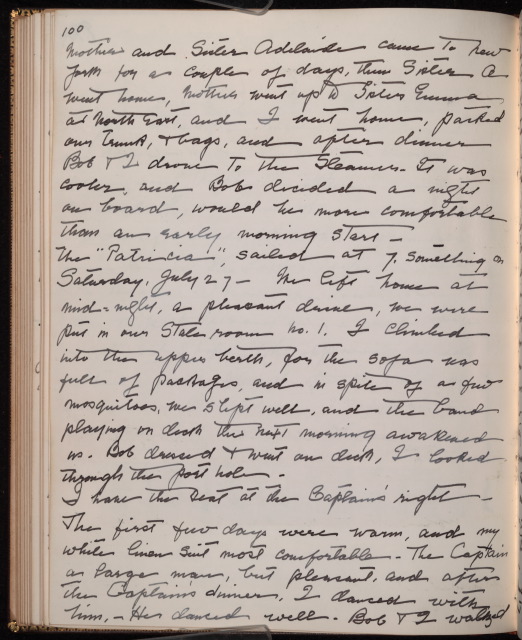 100
Mother and Sister Adelaide came to New
York for a couple of days, then Sister A
went home, Mother went up to Sister Emma
at North East, and I went home, packed
our trunk, & bags, and after dinner
Bob & I drove to the Steamer. It was
cooler, and Bob decided a night
on board, would be more comfortable
than an early morning start -
The "Patricia", sailed at 7. something on
Saturday, July 27 - We left home at
mid-night, a pleasant drive, we were
put in our Stateroom no. 1. I climbed
into the upper berth, for the sofa was
full of packages, and in spite of a few
mosquitoes, we slept well, and the band
playing on deck the next morning awakened
us. Bob dressed & went on deck, I looked
through the port hole -
I have the seat at the Captain's right -
The first few days were warm, and my
white linen suit most comfortable - The Captain
a large man, but pleasant, and after
the Captain's dinner, I danced with
him, - He danced well - Bob & I waltzed